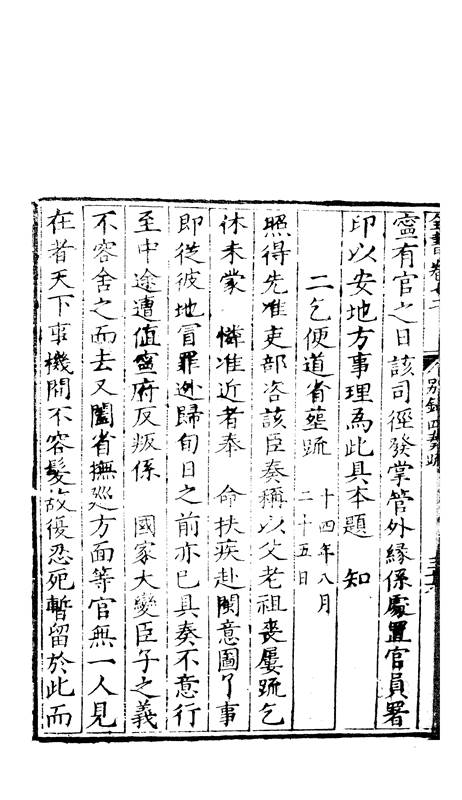 寧有官之日該司徑發掌管外緣係處置官員署
印以安地方事理爲此具本題　知
二乞便道省葬疏　十四年八月二十五日
照得先准吏部咨該臣奏稱以父老祖喪屢疏乞
休未蒙　憐准近者奉　命扶疾赴闕意圖了事
即從彼地冒罪逃歸旬日之前亦已具奏不意行
至中途遭值寧府反叛係　國家大變臣子之義
不容舍之而去又闔省撫廵方面等官無一人見
在者天下事機間不容髮故復忍死暫留於此而